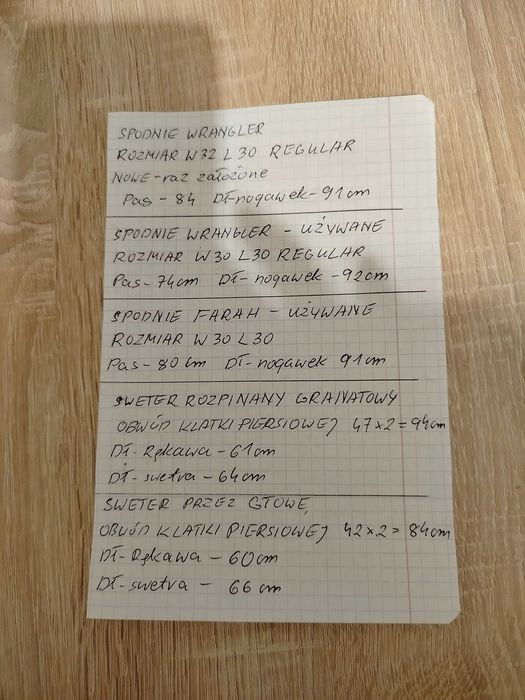 SPODNIE WRANGLER
ROZMIAR W32 L30 REGULAR
NOWE-raz założone
Pas - 84 Dł-nogawek-91cm
SPODNIE WRANGLER - UŻYWANE
ROZMIAR W30 L30 REGULAR
Pas-74cm Dł- nogawek -92cm
SPODNIE FARAH - UŻYWANE
ROZMIAR W30 L30
Pas-80cm Dł-nogawek 91cm
SWETER ROZPINANY GRANATOWY
OBWÓD KLATKI PIERSIOWEJ 47x2=94cm
Dł- Rękawa -61cm
Dł- swetra - 64cm
SWETER PRZEZ GŁOWĘ
OBWÓD KLATKI PIERSIOWEJ 42x2= 84cm
Dł-Rękawa - 60cm
Dł-swetra - 66 cm